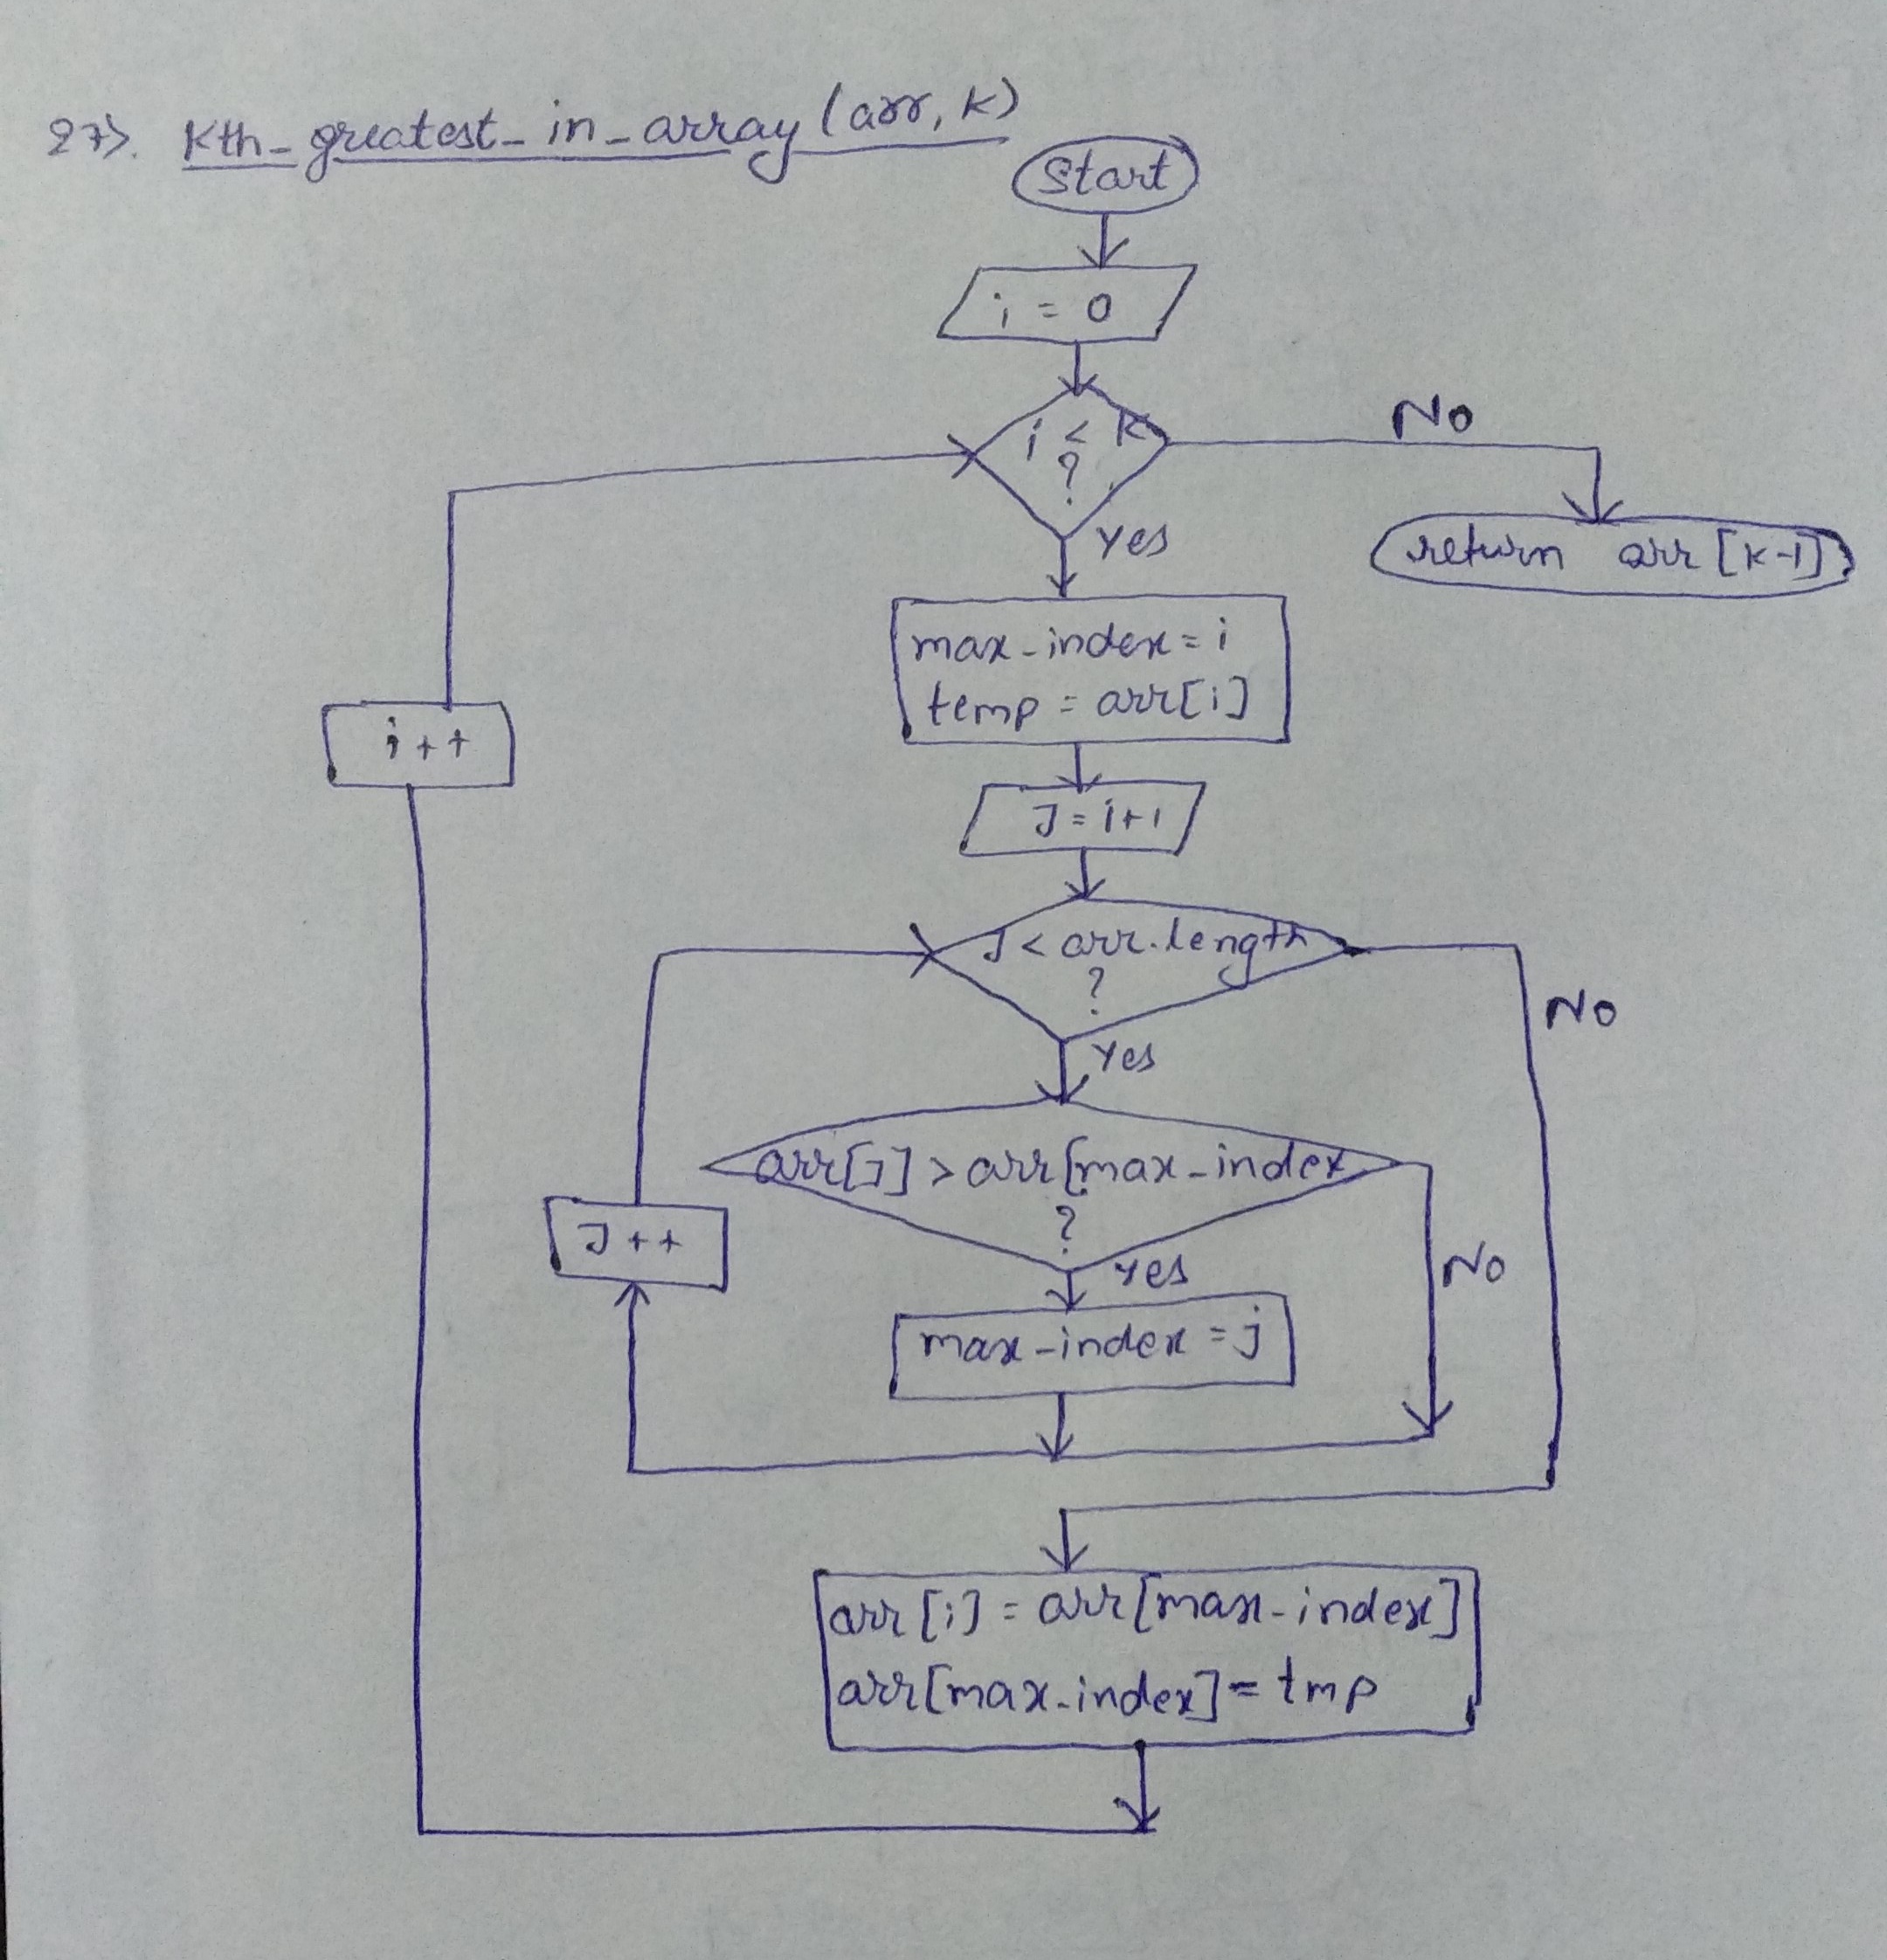 27). Kth-greatest-in-array(arr, K)
Start
i = 0
i < K
?
NO
Yes
return arr[K-1]
max-index = i
temp = arr[i]
i++
J = i+1
J < arr.length
?
NO
Yes
arr[J] > arr[max-index
?
J++
Yes
NO
max-index = j
arr[i] = arr[max-index]
arr[max-index] = tmp